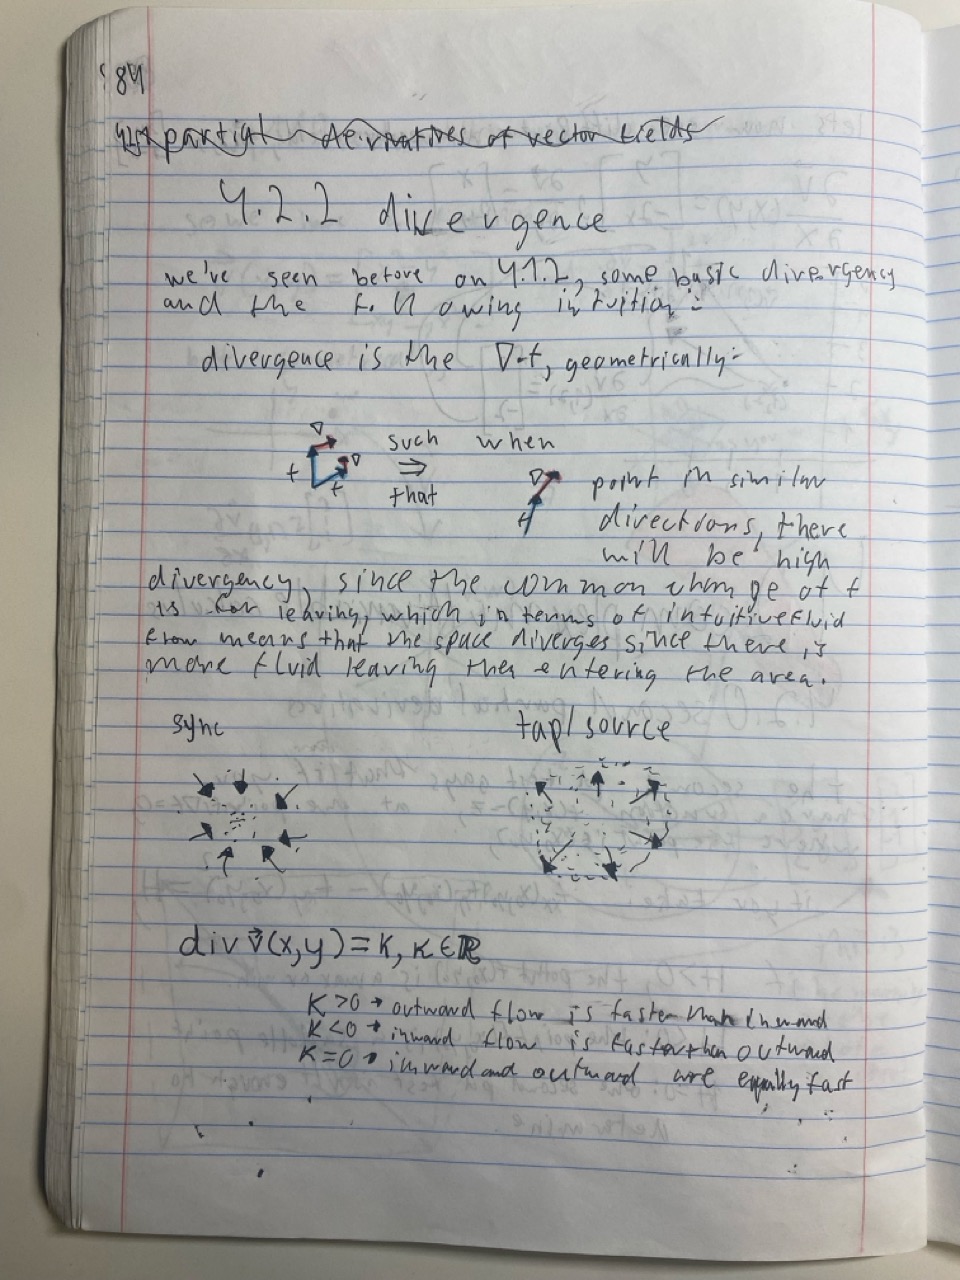 84
partial derivatives of vector fields
4.2.2 divergence
we've seen before on 4.1.2, some basic divergency
and the following intuition:
divergence is the ∇·f, geometrically:
∇
∇
f
f
such when
⇒
that
∇
f
point in similar
directions, there
will be high
divergency, since the common change of f
is for leaving, which in terms of intuitive fluid
flow means that the space diverges since there is
more fluid leaving then entering the area.
sync
tap/source
div v⃗(x,y)=K, K∈ℝ
K>0 → outward flow is faster than inward
K<0 → inward flow is faster than outward
K=0 → inward and outward are equally fast